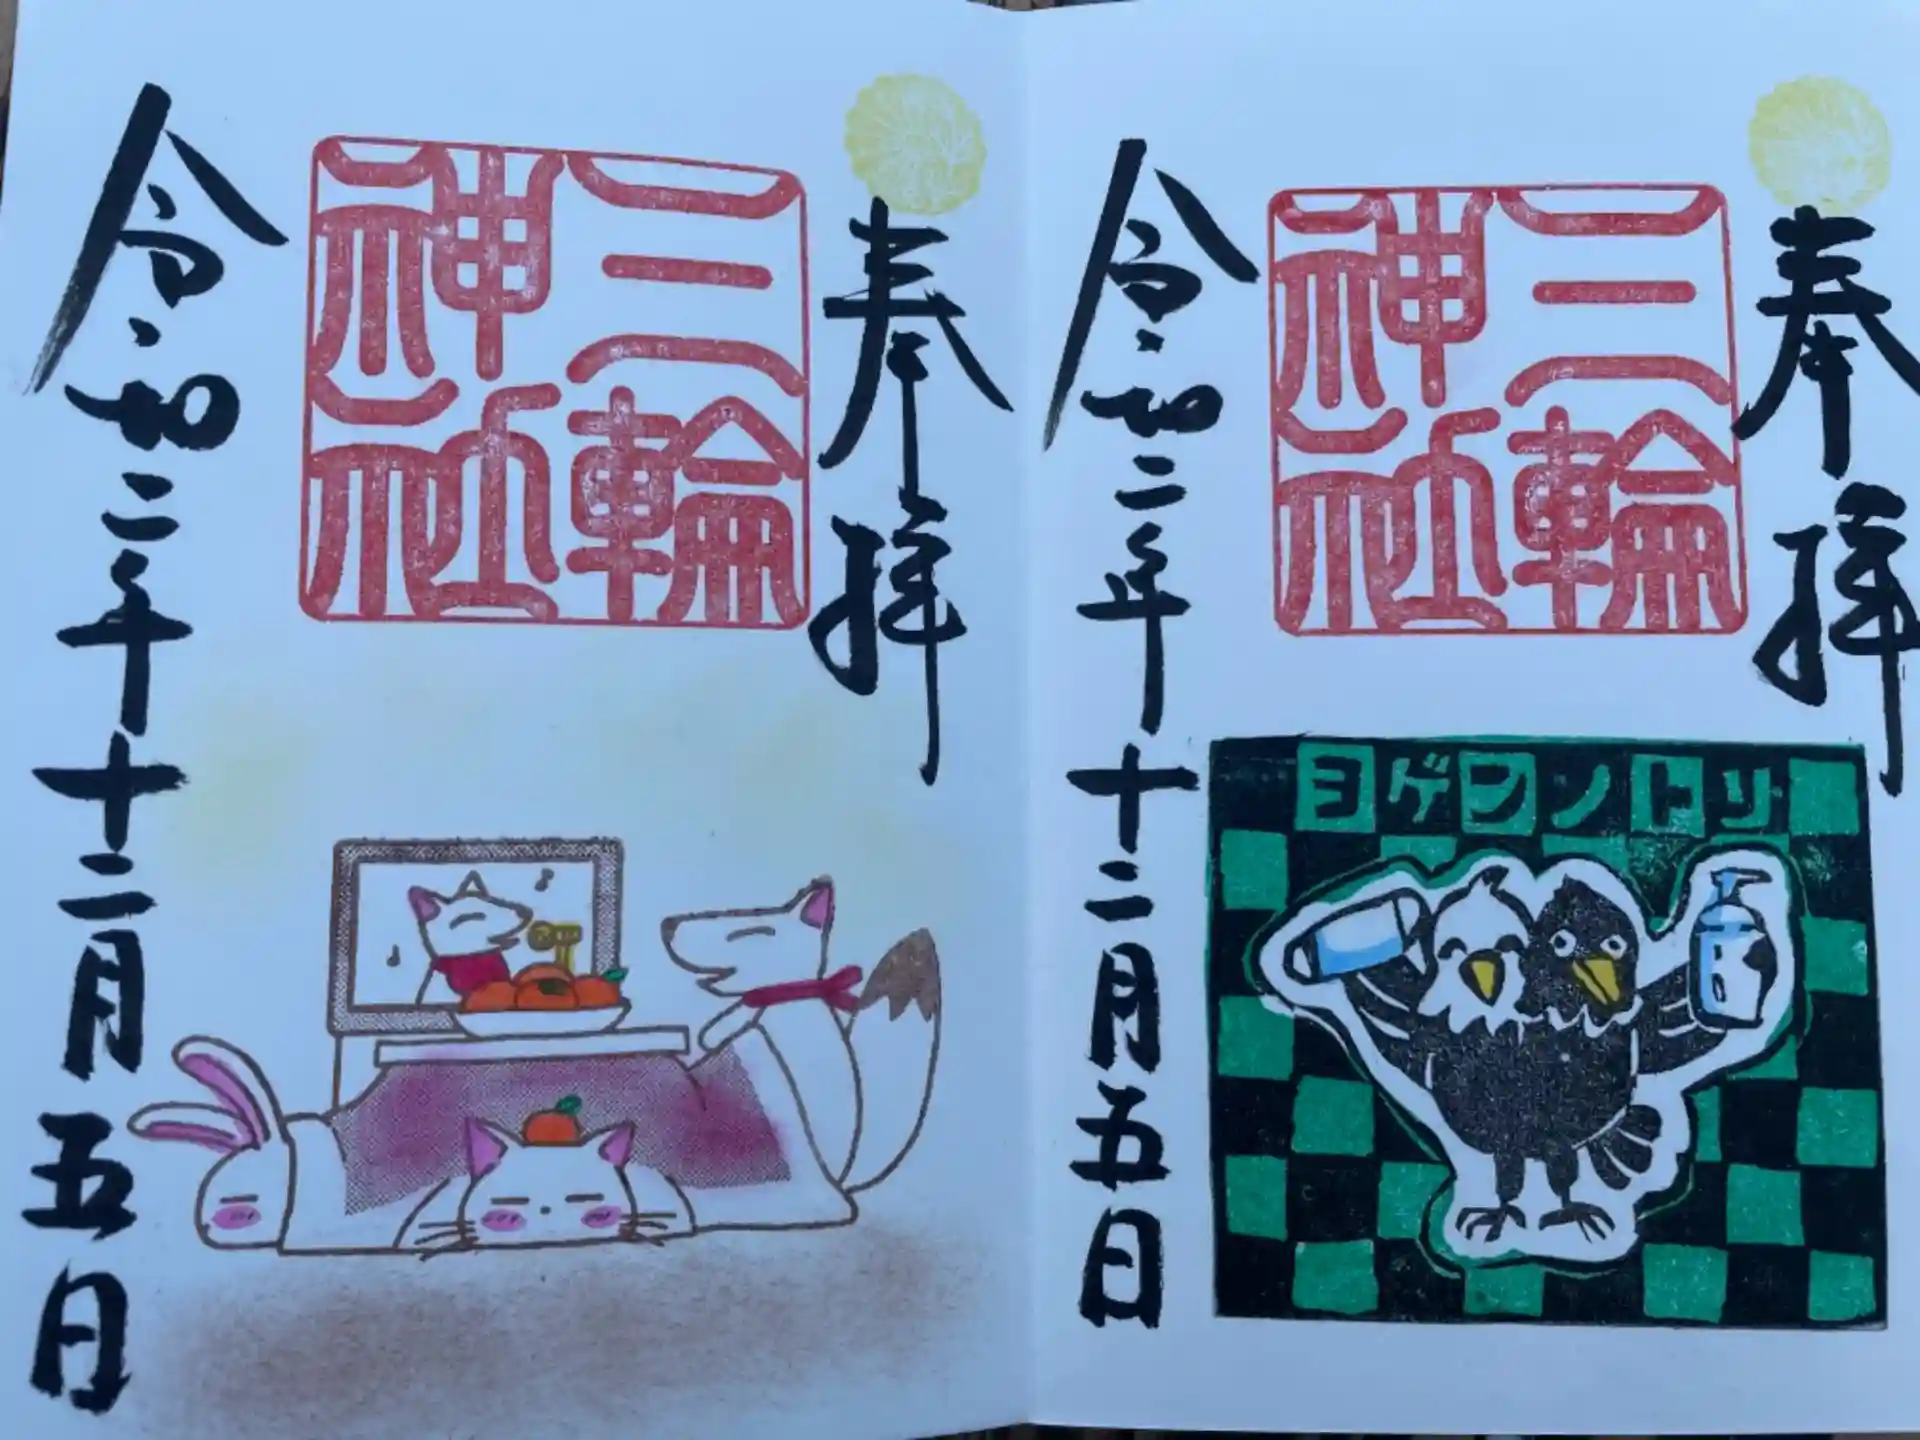 奉拝
三輪
神社
令和二年十二月五日
奉拝
三輪
神社
令和二年十二月五日
ヨゲンノトリ